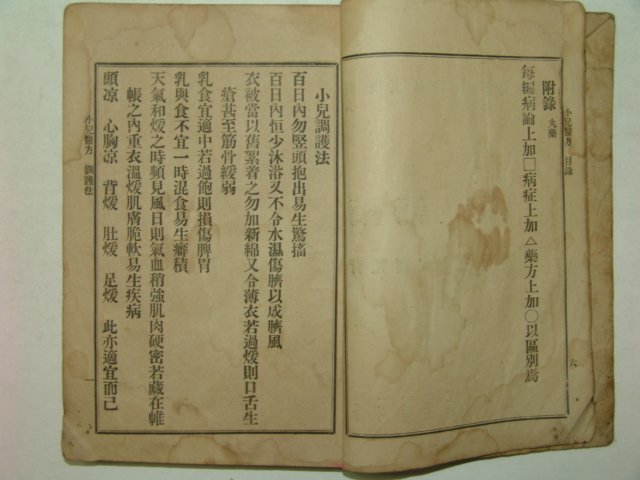 小兒醫方 目錄
附錄 丸藥
每編病論上加□病症上加△藥方上加○以區別焉
六
小兒調護法
百日內勿竪頭抱出易生驚搐
百日內恒少沐浴又不令水濕傷臍以成臍風
衣被當以舊絮着之勿加新綿又令薄衣若過煖則口舌生
瘡甚至筋骨緩弱
乳食宜適中若過飽則損傷脾胃
乳與食不宜一時混食易生癖積
天氣和煖之時頻見風日則氣血稍強肌肉硬密若藏在帷
帳之內重衣溫煖肌膚脆軟易生疾病
頭凉 心胸凉 背煖 肚煖 足煖 此亦適宜而己
小兒醫方 調護法
一